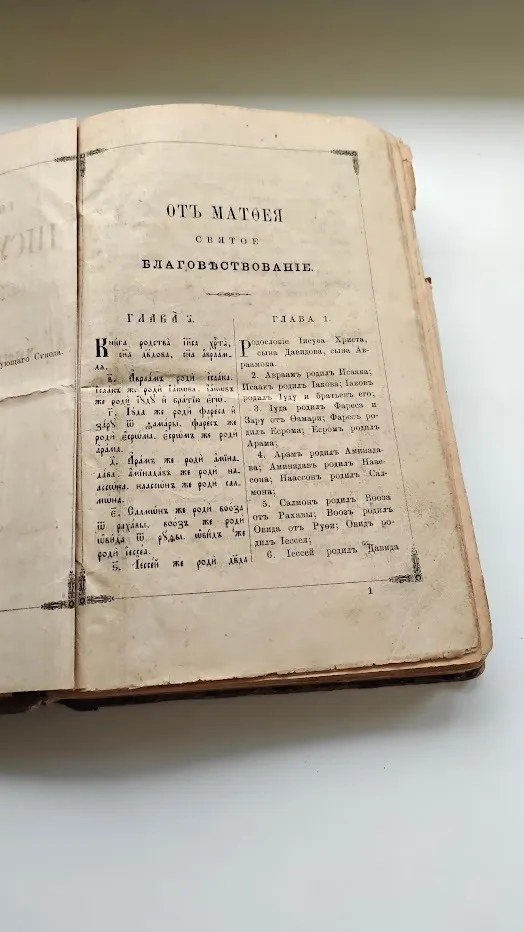 ОТЪ МАТѲЕЯ
СВЯТОЕ
БЛАГОВѢСТВОВАНІЕ.
ГЛАВА̀ а҃.
Кни́га родства̀ і҆и҃са хр҃та̀,
сн҃а дв҃дова, сн҃а а҆враа́м-
ла.
в҃. А҆враа́мъ родѝ і҆саа́ка.
і҆саа́къ же родѝ і҆а́кова. і҆а́ковъ
же родѝ і҆ꙋ́дꙋ и҆ бра́тїю є҆гѡ̀.
г҃. І҆ꙋ́да же родѝ фаре́са и҆
за́рꙋ ѿ ѳама́ры. фаре́съ же
родѝ є҆срѡ́ма. є҆срѡ́мъ же родѝ
а҆ра́ма.
д҃. А҆ра́мъ же родѝ а҆міна-
да́ва. а҆мінада́въ же родѝ на-
ассѡ́на. наассѡ́нъ же родѝ сал-
мѡ́на.
є҃. Салмѡ́нъ же родѝ воо́за
ѿ раха́вы. воо́зъ же родѝ
ѡ҆ви́да ѿ рꙋ́ѳы. ѡ҆ви́дъ же
родѝ і҆ессе́а.
ѕ҃. І҆ессе́й же родѝ дв҃да
ГЛАВА 1.
Родословіе Іисуса Христа,
сына Давидова, сына Ав-
раамова.
2. Авраам родил Исаака;
Исаак родил Іакова; Іаков
родил Іуду и братьев его;
3. Іуда родил Фареса и
Зару от Ѳамари; Фарес ро-
дил Есрома; Есром родил
Арама;
4. Арам родил Аминада-
ва; Аминадав родил Наас-
сона; Наассон родил Сал-
мона;
5. Салмон родил Вооза
от Рахавы; Вооз родил
Овида от Руѳи; Овид ро-
дил Іессея;
6. Іессей родил Давида
1